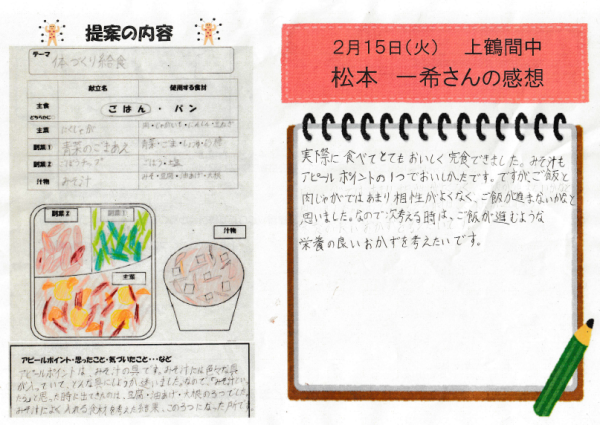 提案の内容
テーマ
体づくり給食
献立名 使用する食材
主食 ごはん・パン
どちらかに
主菜 にくじゃが 肉・じゃがいも・にんじん・玉ねぎ
副菜1 青菜のごまあえ 青菜・ごま
副菜2 ごぼうチップ ごぼう・塩
汁物 みそ汁 みそ・豆腐・油あげ・大根
副菜2 副菜1
主菜
汁物
アピールポイント・思ったこと・気づいたこと・・・など
アピールポイントは、みそ汁の具です。みそ汁には色々な具
が入っていて、どんな具にしようか迷いました。なので、「みそ汁とい
ったら」と思った時に出てきたのは、豆腐・油あげ・大根の3つでした。
みそ汁によく入れる食材を考えた結果、この3つになった所です。
2月15日(火) 上鶴間中
松本 一希さんの感想
実際に食べてとてもおいしく完食できました。みそ汁も
アピールポイントの1つでおいしかったです。ですが、ご飯と
肉じゃがではあまり相性がよくなく、ご飯が進まないかなと
思いました。なので次考える時は、ご飯が進むような
栄養の良いおかずを考えたいです。